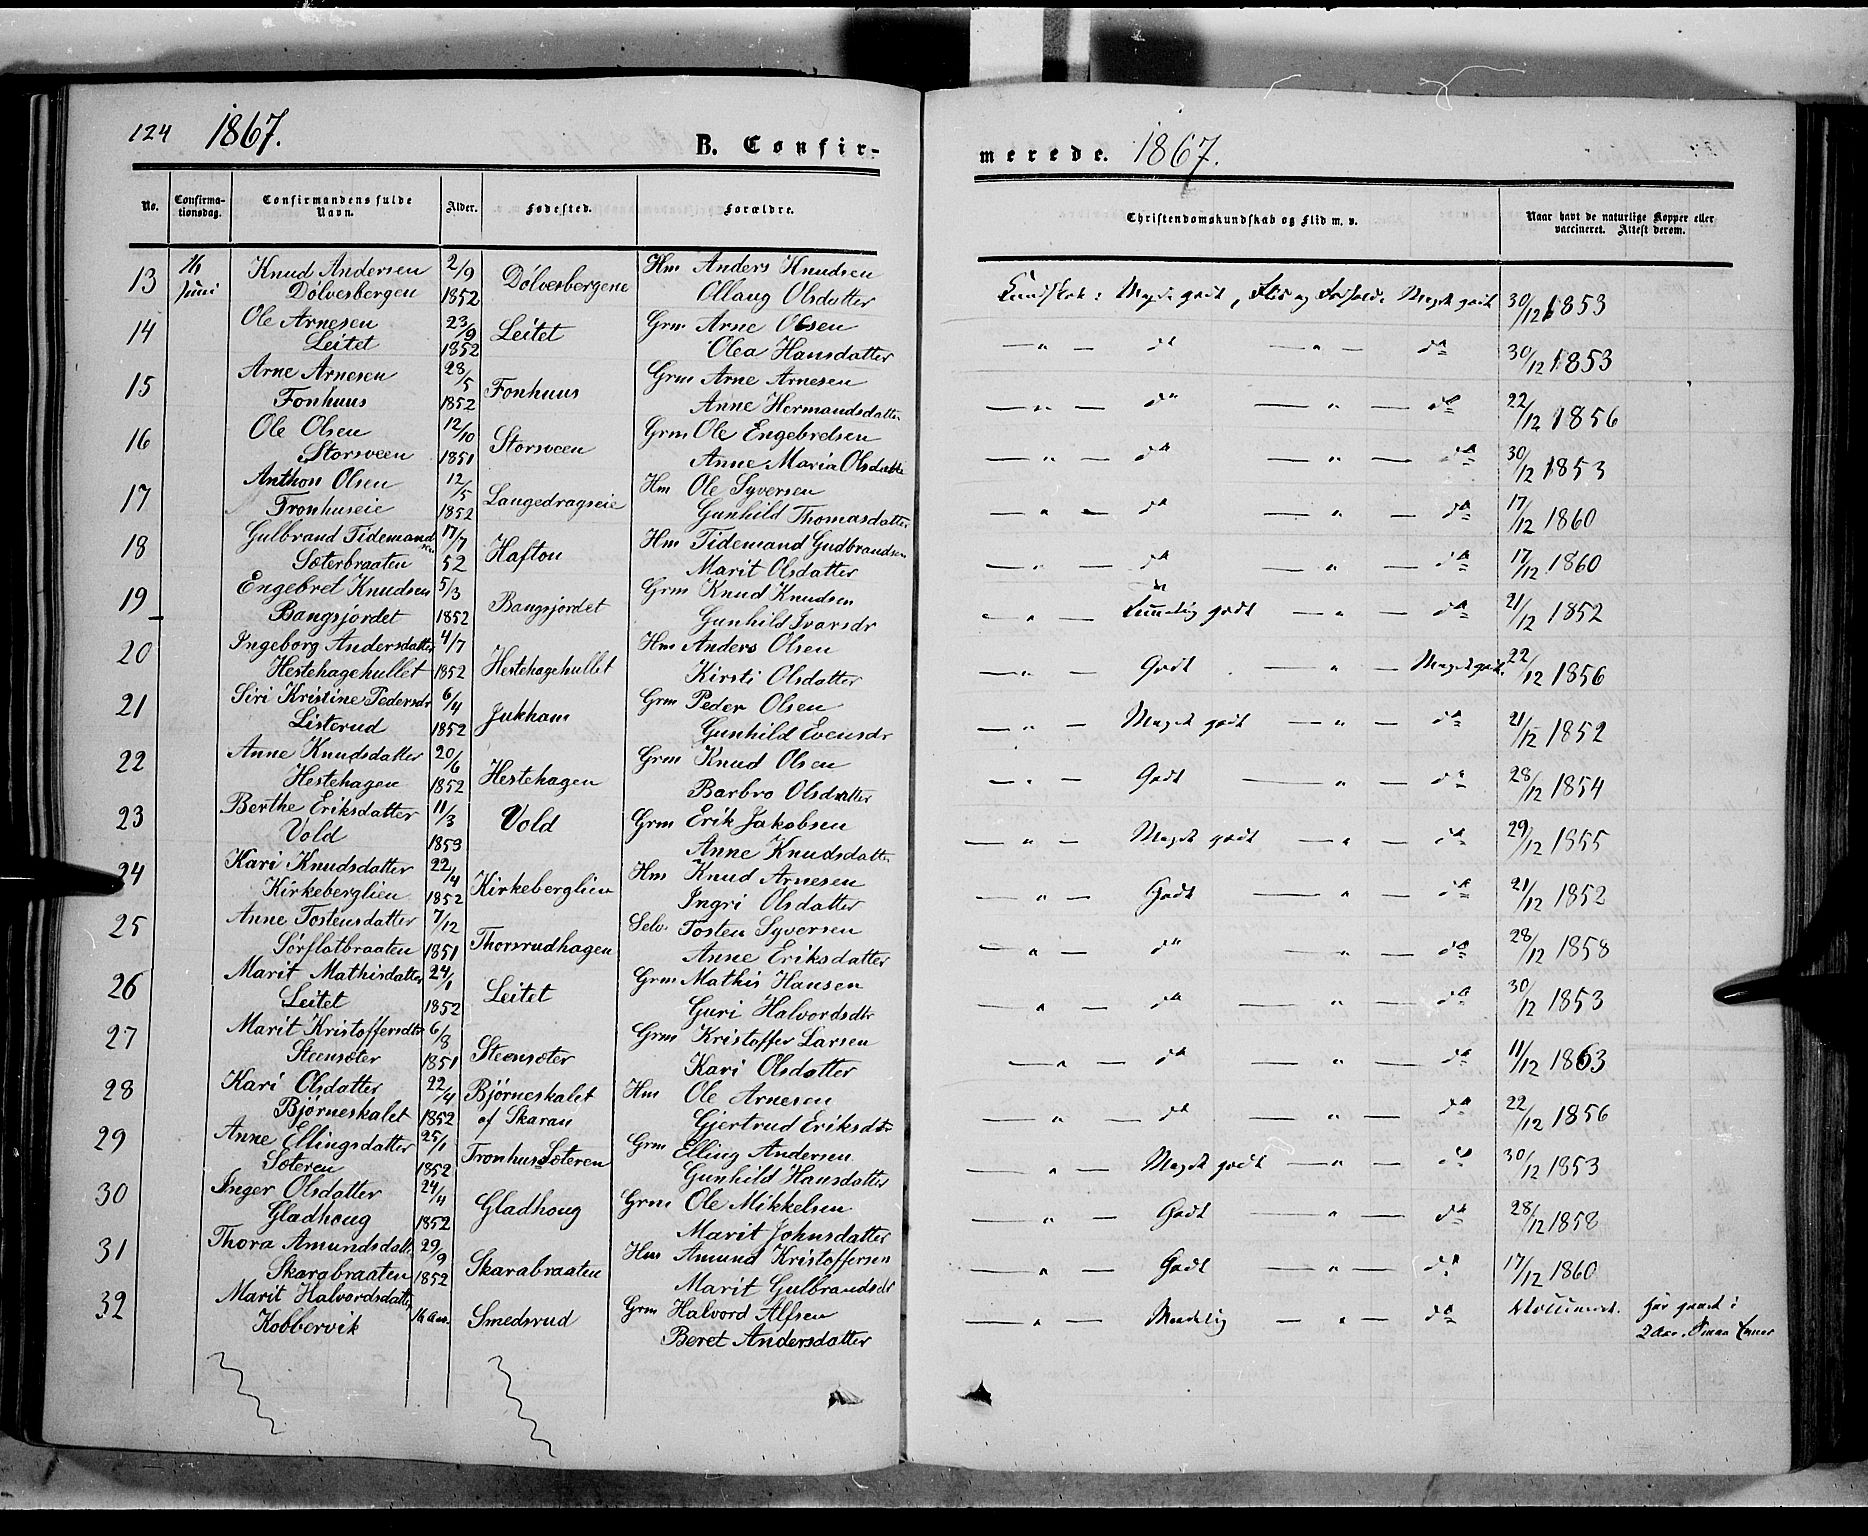 124 1867. B. Confir-
No. Confirma-tionsdag. Confirmandens fulde Navn. Alder. Fødested. Forældre.
13 16 Juni Knud Andersen 2/9 Dølvesbergene Hm Anders Knudsen
Dølvesbergen 1852 Ollaug Olsdatter
14 Ole Arnesen 23/9 Leitet Grm Arne Olsen
Leitet 1852 Olea Hansdatter
15 Arne Arnesen 28/5 Fonhuus Grm Arne Arnesen
Fonhuus 1852 Anne Hermandsdatter
16 Ole Olsen 12/10 Storsveen Grm Ole Engebretsen
Storsveen 1851 Anne Maria Olsdatter
17 Anthon Olsen 12/5 Langedragseie Hm Ole Syversen
Fronhuseie 1852 Gunhild Thomasdatter
18 Gulbrand Tidemandsen 17/7 Hafton Hm Tidemand Gudbrandsen
Sæterbraaten 52 Marit Olsdatter
19 Engebret Knudsen 5/3 Bangsjordet Grm Knud Knudsen
Bangsjordet 1852 Gunhild Ivarsdr
20 Ingeborg Andersdatter 4/7 Hestehagehullet Hm Anders Olsen
Hestehagehullet 1852 Kirsti Olsdatter
21 Siri Kristine Pedersdr 6/4 Jukham Grm Peder Olsen
Listerud 1852 Gunhild Evensdr
22 Anne Knudsdatter 20/6 Hestehagen Grm Knud Olsen
Hestehagen 1852 Barbro Olsdatter
23 Berthe Eriksdatter 11/3 Vold Grm Erik Jakobsen
Vold 1853 Anne Knudsdatter
24 Kari Knudsdatter 22/4 Kirkeberglien Hm Knud Arnesen
Kirkeberglien 1852 Ingri Olsdatter
25 Anne Tostensdatter 7/12 Thorsrudhagen Selv. Tosten Syversen
Sørflatbraaten 1851 Anne Eriksdatter
26 Marit Mathisdatter 24/1 Leitet Grm Mathis Hansen
Leitet 1852 Guri Halvordsdtr
27 Marit Kristoffersdtr 6/8 Steensæter Grm Kristoffer Larsen
Steensæter 1851 Kari Olsdatter
28 Kari Olsdatter 22/4 Bjørneskalet Hm Ole Arnesen
Bjørneskalet 1852 af Skaran Gjertrud Eriksdtr
29 Anne Ellingsdatter 25/1 Fronhus Sæteren Grm Elling Andersen
Sæteren 1852 Gunhild Hansdatter
30 Inger Olsdatter 24/4 Gladhoug Grm Ole Mikkelsen
Gladhoug 1852 Marit Johnsdatter
31 Thora Amundsdatt. 29/9 Skarabraaten Hm Amund Kristoffersen
Skarabraaten 1852 Marit Gulbrandsdr
32 Marit Halvordsdatter 16 Aar. Smedsrud Grm Halvord Alfsen
Kobbervik Beret Andersdatter
merede. 1867.
Christendomskundskab og Flid m. v. Naar havt de naturlige Kopper eller vaccineret. Attest derom.
Kundskab: Meget godt, Flid og Forhold. Meget godt 30/12 1853
— " — do — " — do 30/12 1853
— " — do — " — do 22/12 1856
— " — do — " — do 30/12 1853
— " — do — " — do 17/12 1860
— " — do — " — do 17/12 1860
— " — Temmelig godt — " — do 21/12 1852
— " — Godt — " — Meget godt. 22/12 1856
— " — Meget godt — " — do 21/12 1852
— " — Godt — " — do 28/12 1854
— " — Meget godt — " — do 29/12 1855
— " — Godt — " — do 21/12 1852
— " — do — " — do 28/12 1858
— " — do — " — do 30/12 1853
— " — do — " — do 11/12 1863
— " — do — " — do 22/12 1856
— " — Meget godt — " — do 30/12 1853
— " — Godt — " — do 28/12 1858
— " — Godt — " — do 17/12 1860
— " — Maadelig — " — do